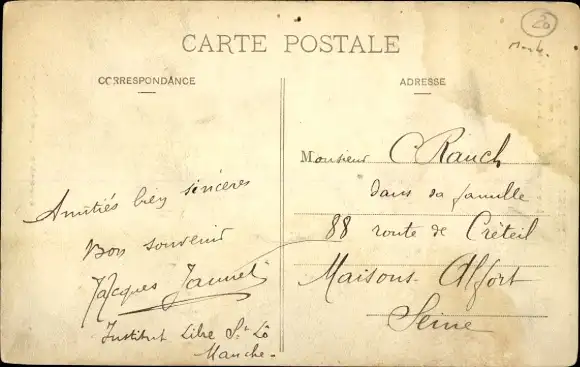 20
CARTE POSTALE
CORRESPONDANCE
ADRESSE
Monsieur C Rauch
dans sa famille
88 route de Créteil
Maisons-Alfort
Seine
Amitiés bien sincères
Bon souvenir
Jacques Jaunet
Institut Libre St Lô
Manche-